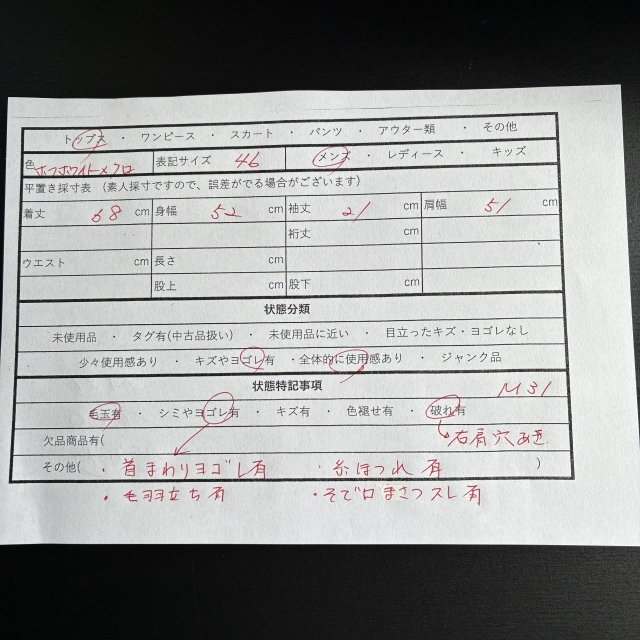 トップス ・ ワンピース ・ スカート ・ パンツ ・ アウター類 ・ その他
色 オフホワイト×クロ 表記サイズ 46 メンズ ・ レディース ・ キッズ
平置き採寸表 (素人採寸ですので、誤差がでる場合がございます)
着丈 68 cm 身幅 52 cm 袖丈 21 cm 肩幅 51 cm
裄丈 cm
ウエスト cm 長さ cm
股上 cm 股下 cm
状態分類
未使用品 ・ タグ有(中古品扱い) ・ 未使用品に近い ・ 目立ったキズ・ヨゴレなし
少々使用感あり ・ キズやヨゴレ有 ・全体的に使用感あり ・ ジャンク品
状態特記事項 M31
毛玉有 ・ シミやヨゴレ有 ・ キズ有 ・ 色褪せ有 ・ 破れ有
欠品商品有( 右肩穴あき
その他( ・首まわりヨゴレ有 ・糸ほつれ有 )
・毛羽立ち有 ・そで口まさつスレ有